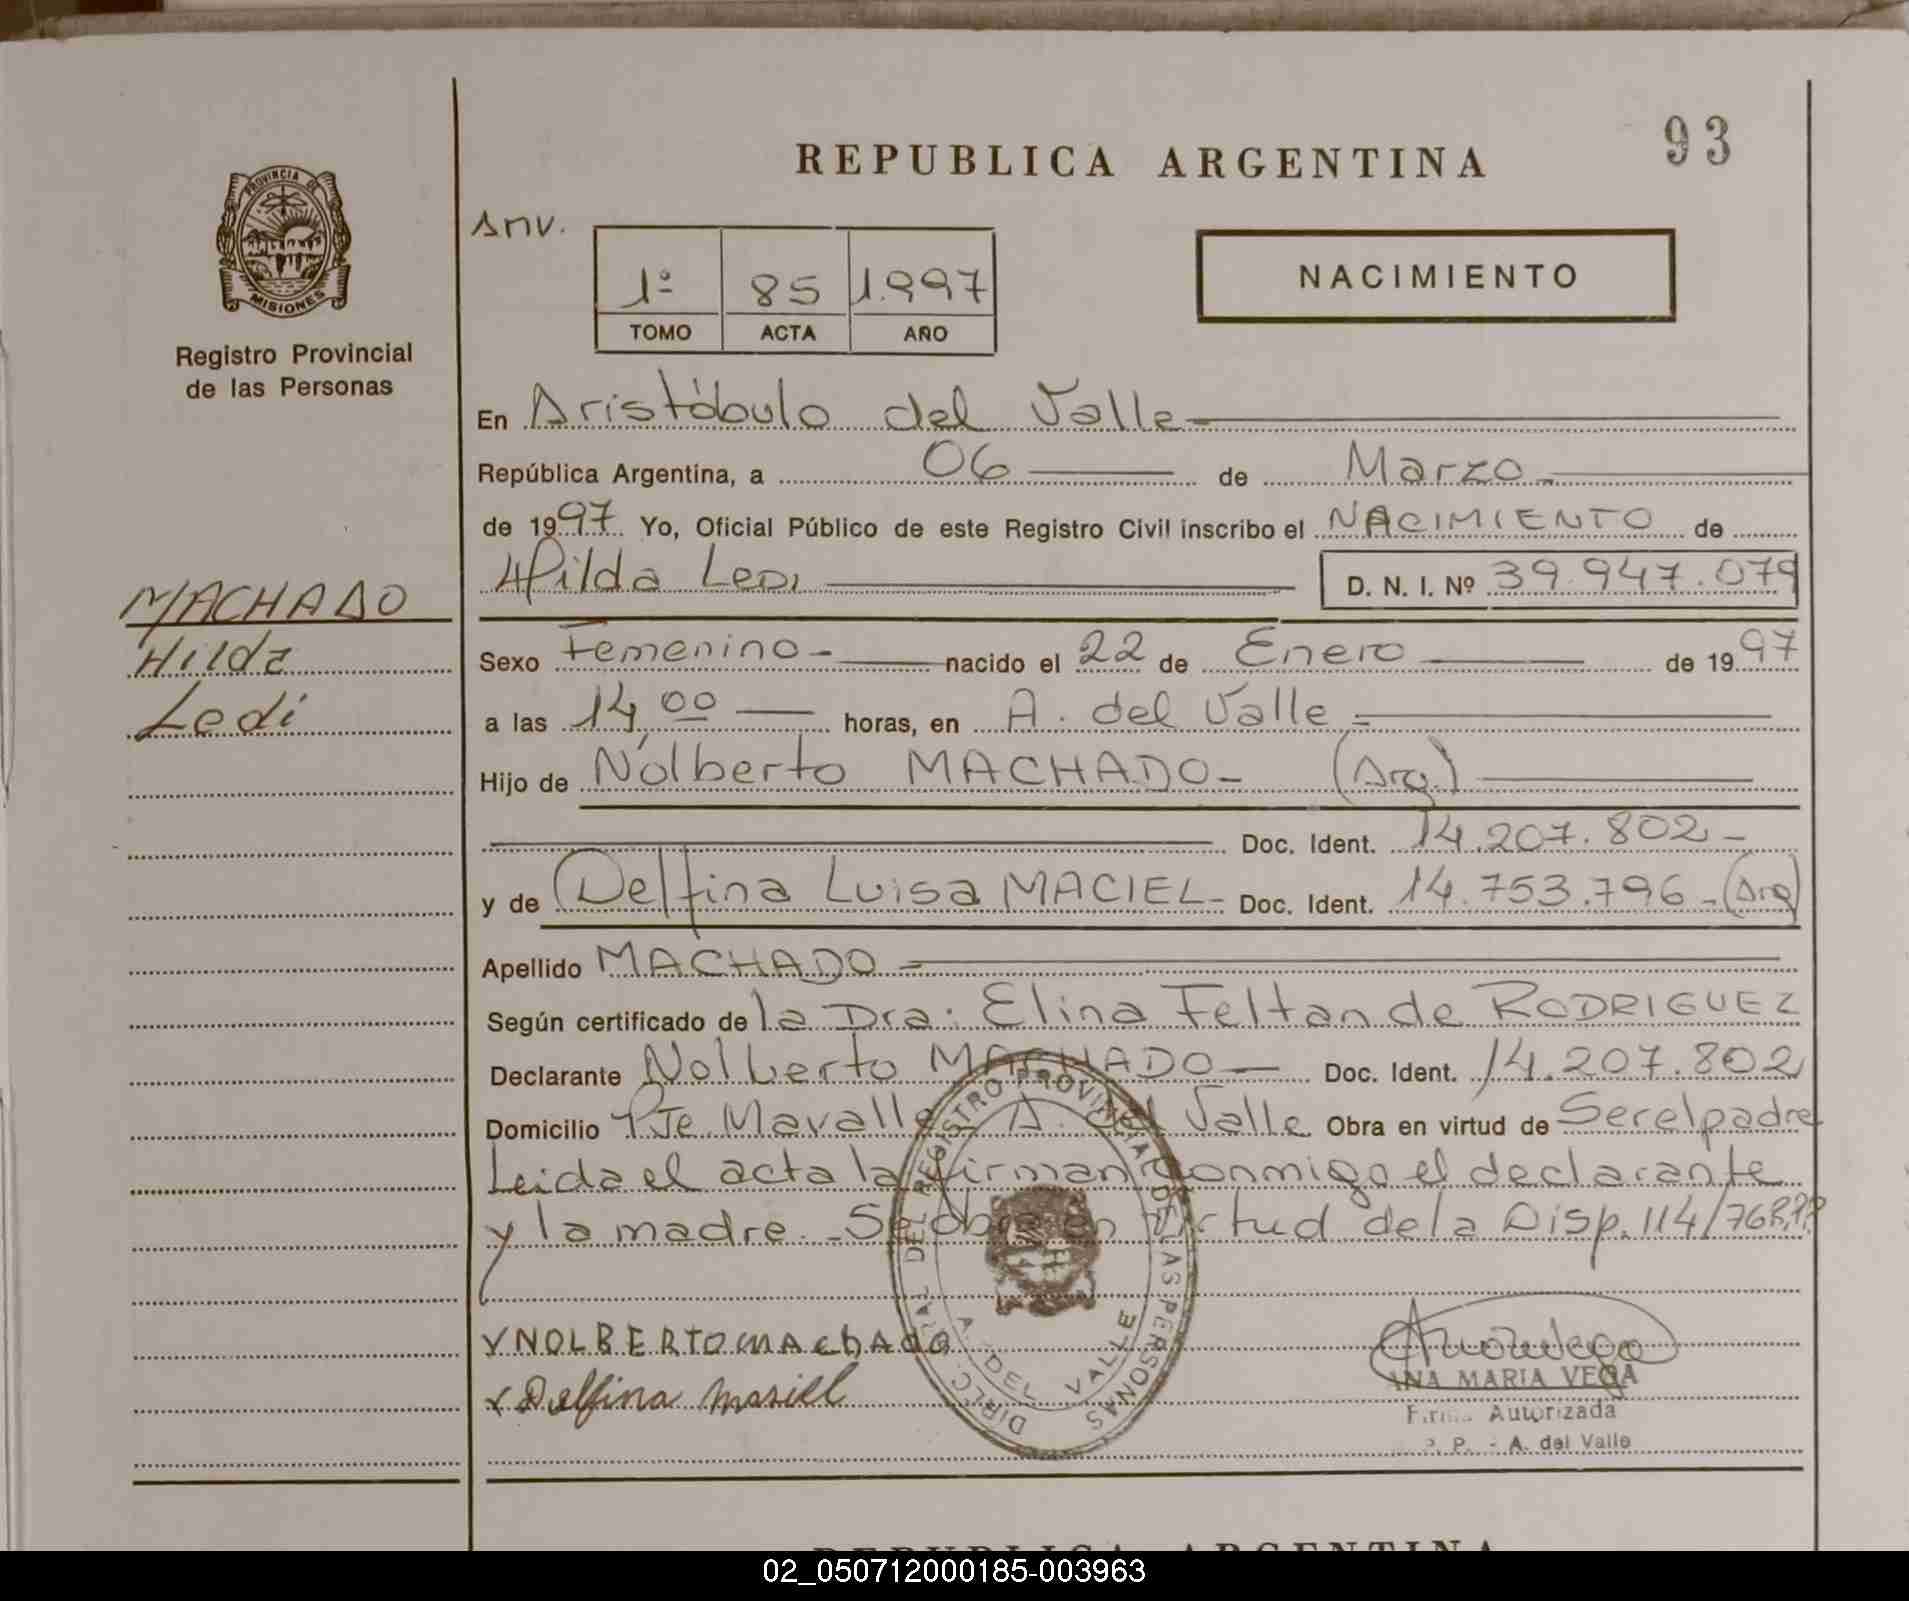 93
REPUBLICA ARGENTINA
PROVINCIA DE
MISIONES
Registro Provincial
de las Personas
Anv.
1º 85 1.997
TOMO ACTA AÑO
NACIMIENTO
En Aristóbulo del Valle
República Argentina, a 06 de Marzo
de 1997 Yo, Oficial Público de este Registro Civil inscribo el NACIMIENTO de
Hilda Ledi D. N. I. Nº 39.947.079
MACHADO
Hilda
Ledi
Sexo Femenino nacido el 22 de Enero de 1997
a las 14,00 horas, en A. del Valle
Hijo de Nolberto MACHADO- (Arg.)
Doc. Ident. 14.207.802-
y de Delfina Luisa MACIEL- Doc. Ident. 14.753.796-(Arg)
Apellido MACHADO
Según certificado de la Dra: Elina Feltan de RODRIGUEZ
Declarante Nolberto MACHADO Doc. Ident. 14.207.802
Domicilio Pje. Mavalle A. del Valle Obra en virtud de Ser el padre
Leida el acta la firman conmigo el declarante
y la madre. Se obra en virtud de la Disp. 114/76
DEL REGISTRO PROVINCIAL DE LAS PERSONAS
A. DEL VALLE
NOLBERTO MACHADO
Delfina Masiel
ANA MARIA VEGA
Firma Autorizada
A. del Valle
REPUBLICA ARGENTINA
02_050712000185-003963